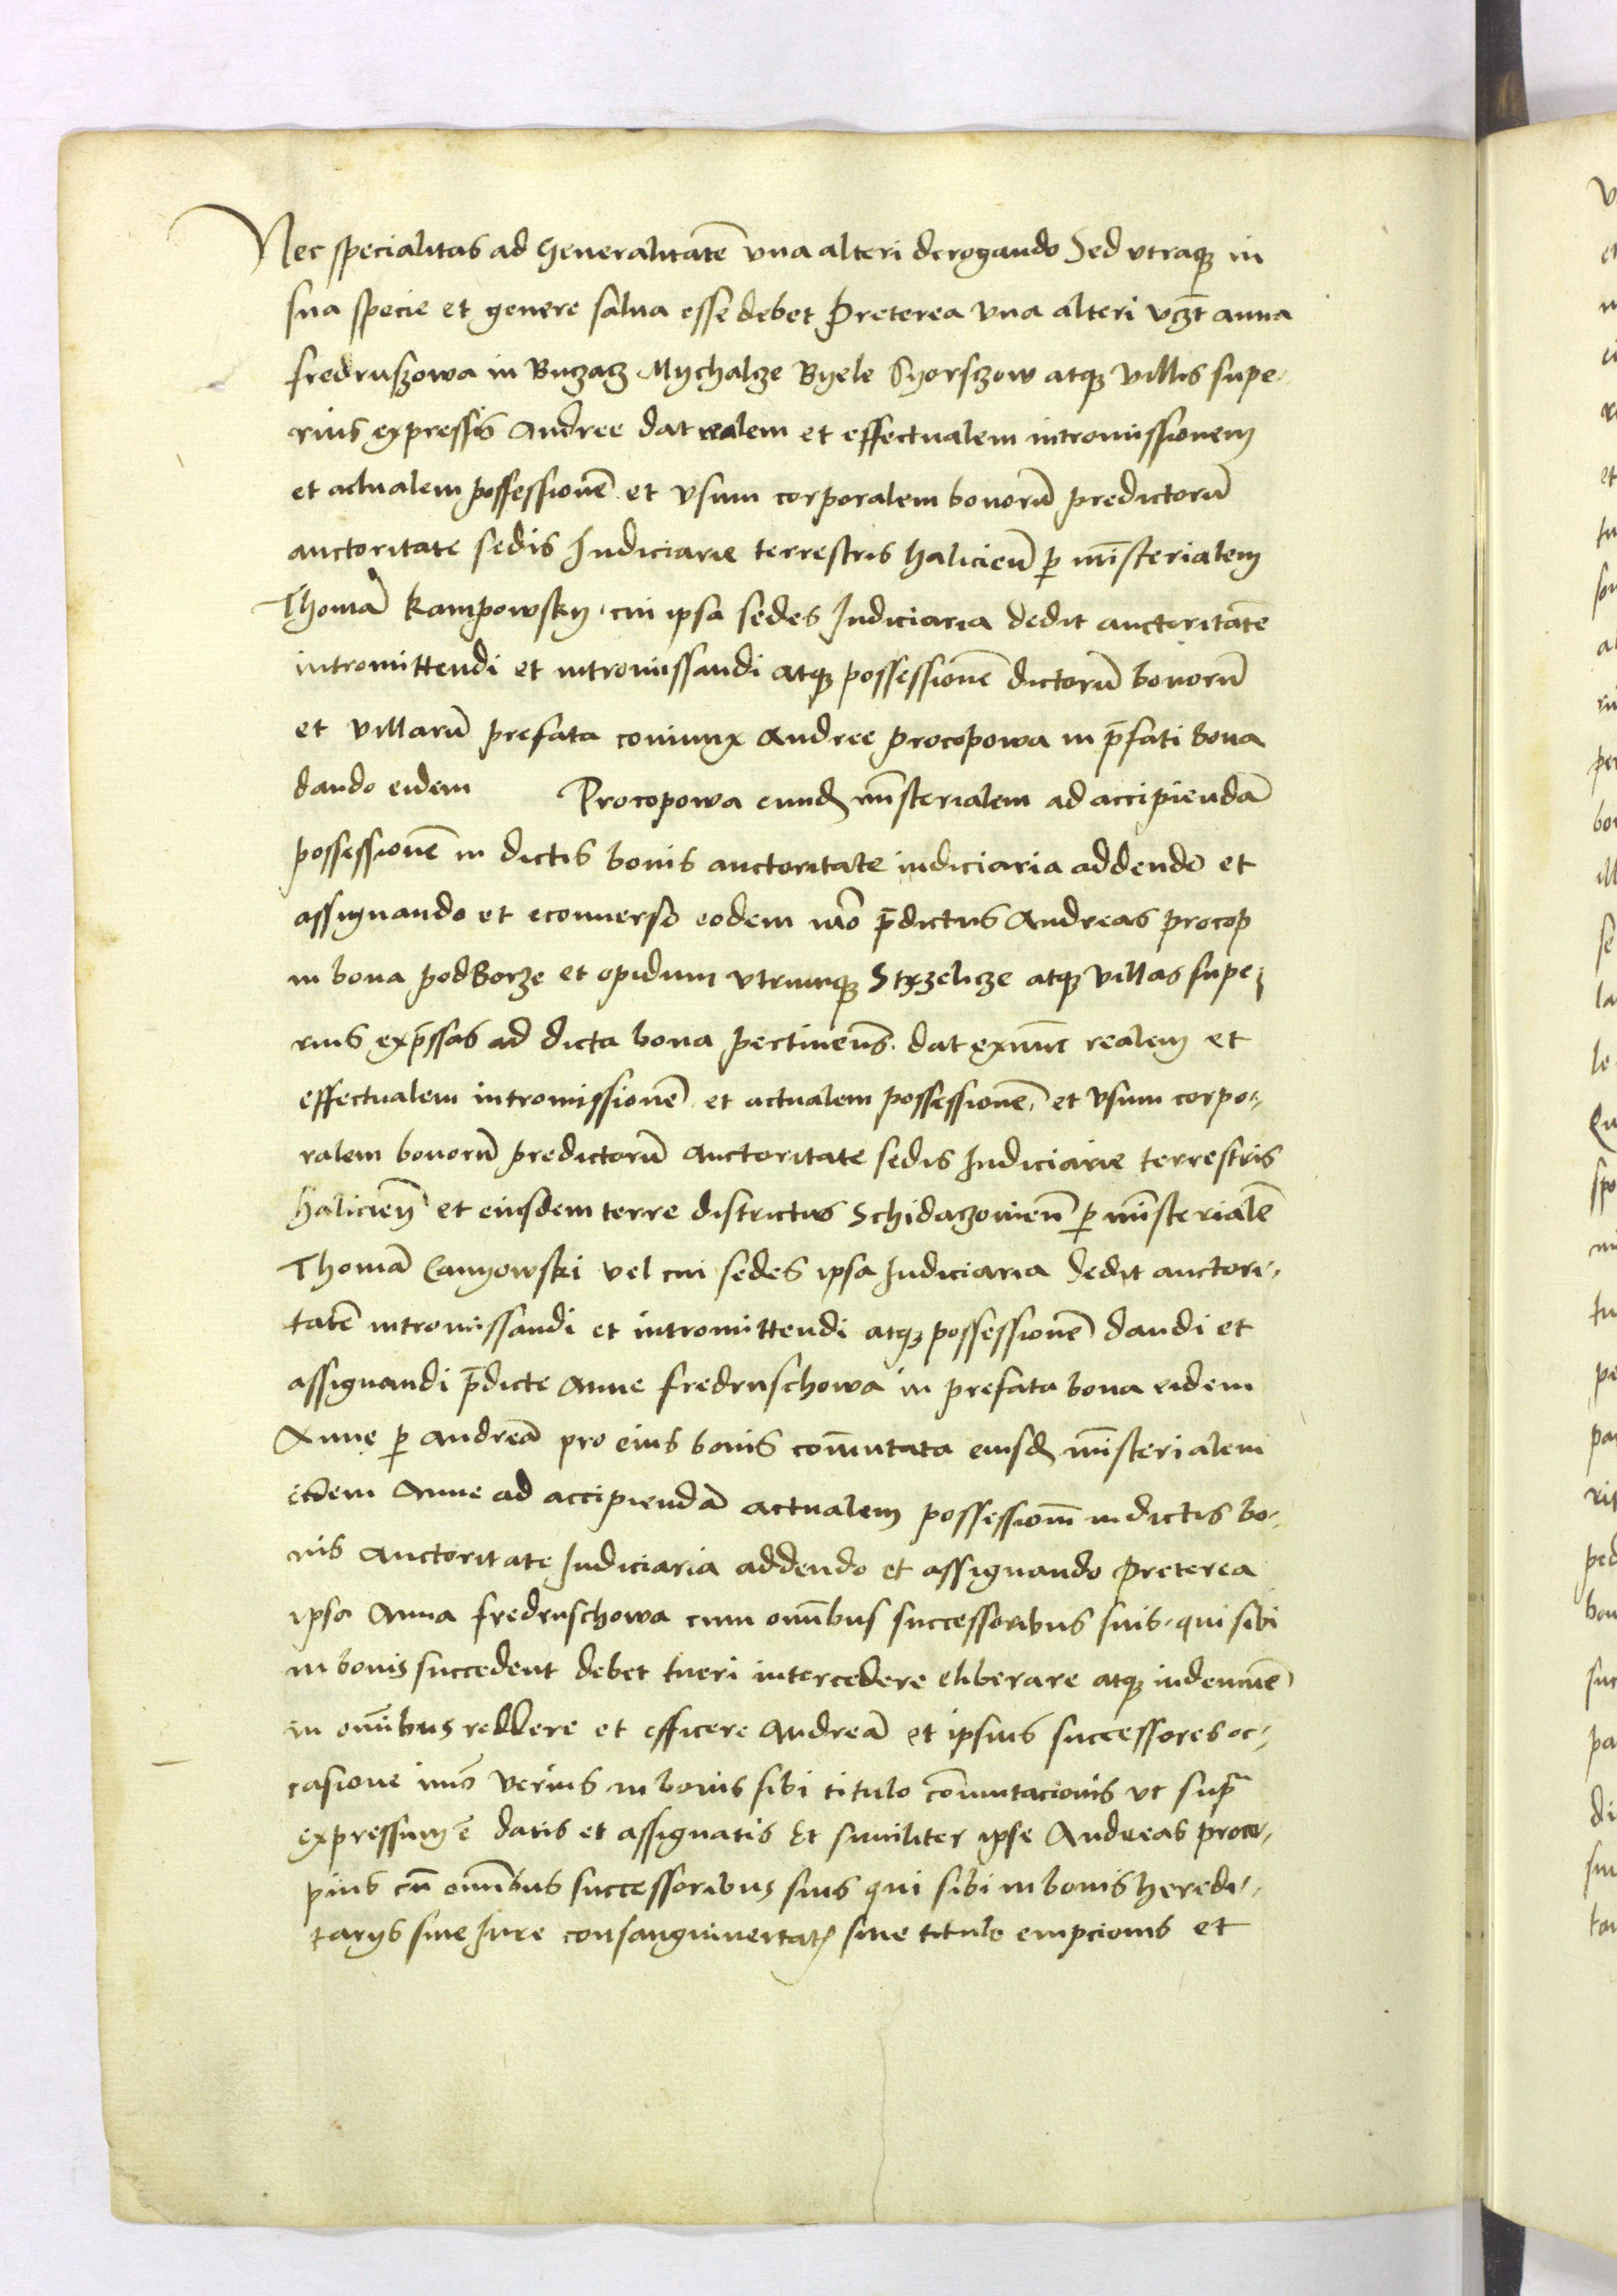 Nec specialitas ad Generalitatē vna alteri derogando Sed vtraqꝫ in
sua specie et genere salua esse debet Preterea vna alteri vczt anna
fredruszowa in Buczacz Mychalcze Byele Syerszow atqꝫ villis supe-
rius expressis Andree dat realem et effectualem intromissionem
et actualem possessionē et vsum corporalem bonorū predictorū
auctoritate sedis Iudiciarie terrestris halicieñ ꝑ mīsterialem
Thomā Kampowsky cui ipsa sedes Iudiciaria dedit auctoritatē
intromittendi et intromissandi atqꝫ possessionē dictorū bonorū
et villarū prefata coniunx Andree procopowa in p̄fati bona
dando eidem Procopowa eundꝫ mīsterialem ad accipiendā
possessionē in dictis bonis auctoritate iudiciaria addendo et
assignando et econuerso eodem mō p̄dictus Andreas procop
in bona podBorze et opidum vtrumqꝫ Strzelicze atqꝫ villas supe-
rius exp̄ssas ad dicta bona pertinens dat exnunc realem et
effectualem intromissionē et actualem possessionē et vsum corpo-
ralem bonorū predictorū Auctoritate sedis Iudiciarie terrestris
halicieñ et eiusdem terre districtus Schidaczowieñ ꝑ mīsterialē
Thomā Camyowski vel cui sedes ipsa Iudiciaria dedit auctori-
tatē intromissandi et intromittendi atqꝫ possessionē dandi et
assignandi p̄dicte Anne fredruschowa in prefata bona eidem
Anne ꝑ andreā pro eius bonis com̄utata eiusdꝫ mīsterialem
eidem Anne ad accipiendā actualem possessionē in dictis bo-
nis Auctoritate Iudiciaria addendo et assignando Preterea
ipsa Anna fredruschowa cum om̄ibus successoribus suis qui sibi
in bonis succedent debet tueri intercedere eliberare atqꝫ indemnē
in om̄ibus reddere et efficere Andreā et ipsius successores oc-
casione verius in bonis sibi titulo com̄utacionis vt supra
expressum ē datis et assignatis Et similiter ipse Andreas proco-
pius cū om̄ibus successoribus suis qui sibi in bonis heredi-
tarys siue Iure consanguineitatꝭ siue titulo empcionis et